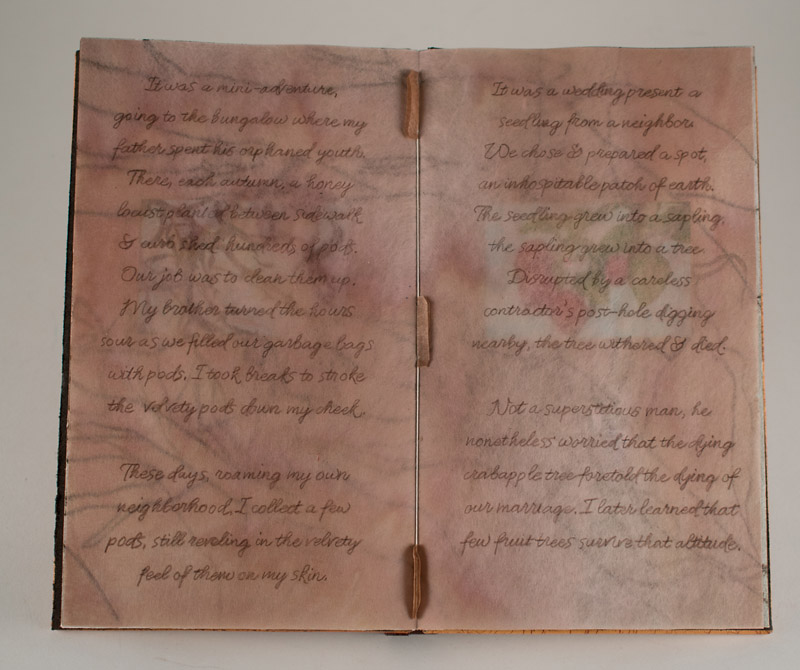 It was a mini-adventure,
going to the bungalow where my
father spent his orphaned youth.
There, each autumn, a honey
locust planted between sidewalk
& curb shed hundreds of pods.
Our job was to clean them up.
My brother turned the hours
sour as we filled our garbage bags
with pods. I took breaks to stroke
the velvety pods down my cheek.
These days, roaming my own
neighborhood, I collect a few
pods, still reveling in the velvety
feel of them on my skin.
It was a wedding present a
seedling from a neighbor.
We chose & prepared a spot,
an inhospitable patch of earth.
The seedling grew into a sapling,
the sapling grew into a tree.
Disrupted by a careless
contractor's post-hole digging
nearby, the tree withered & died.
Not a superstitious man, he
nonetheless worried that the dying
crabapple tree foretold the dying of
our marriage. I later learned that
few fruit trees survive that altitude.